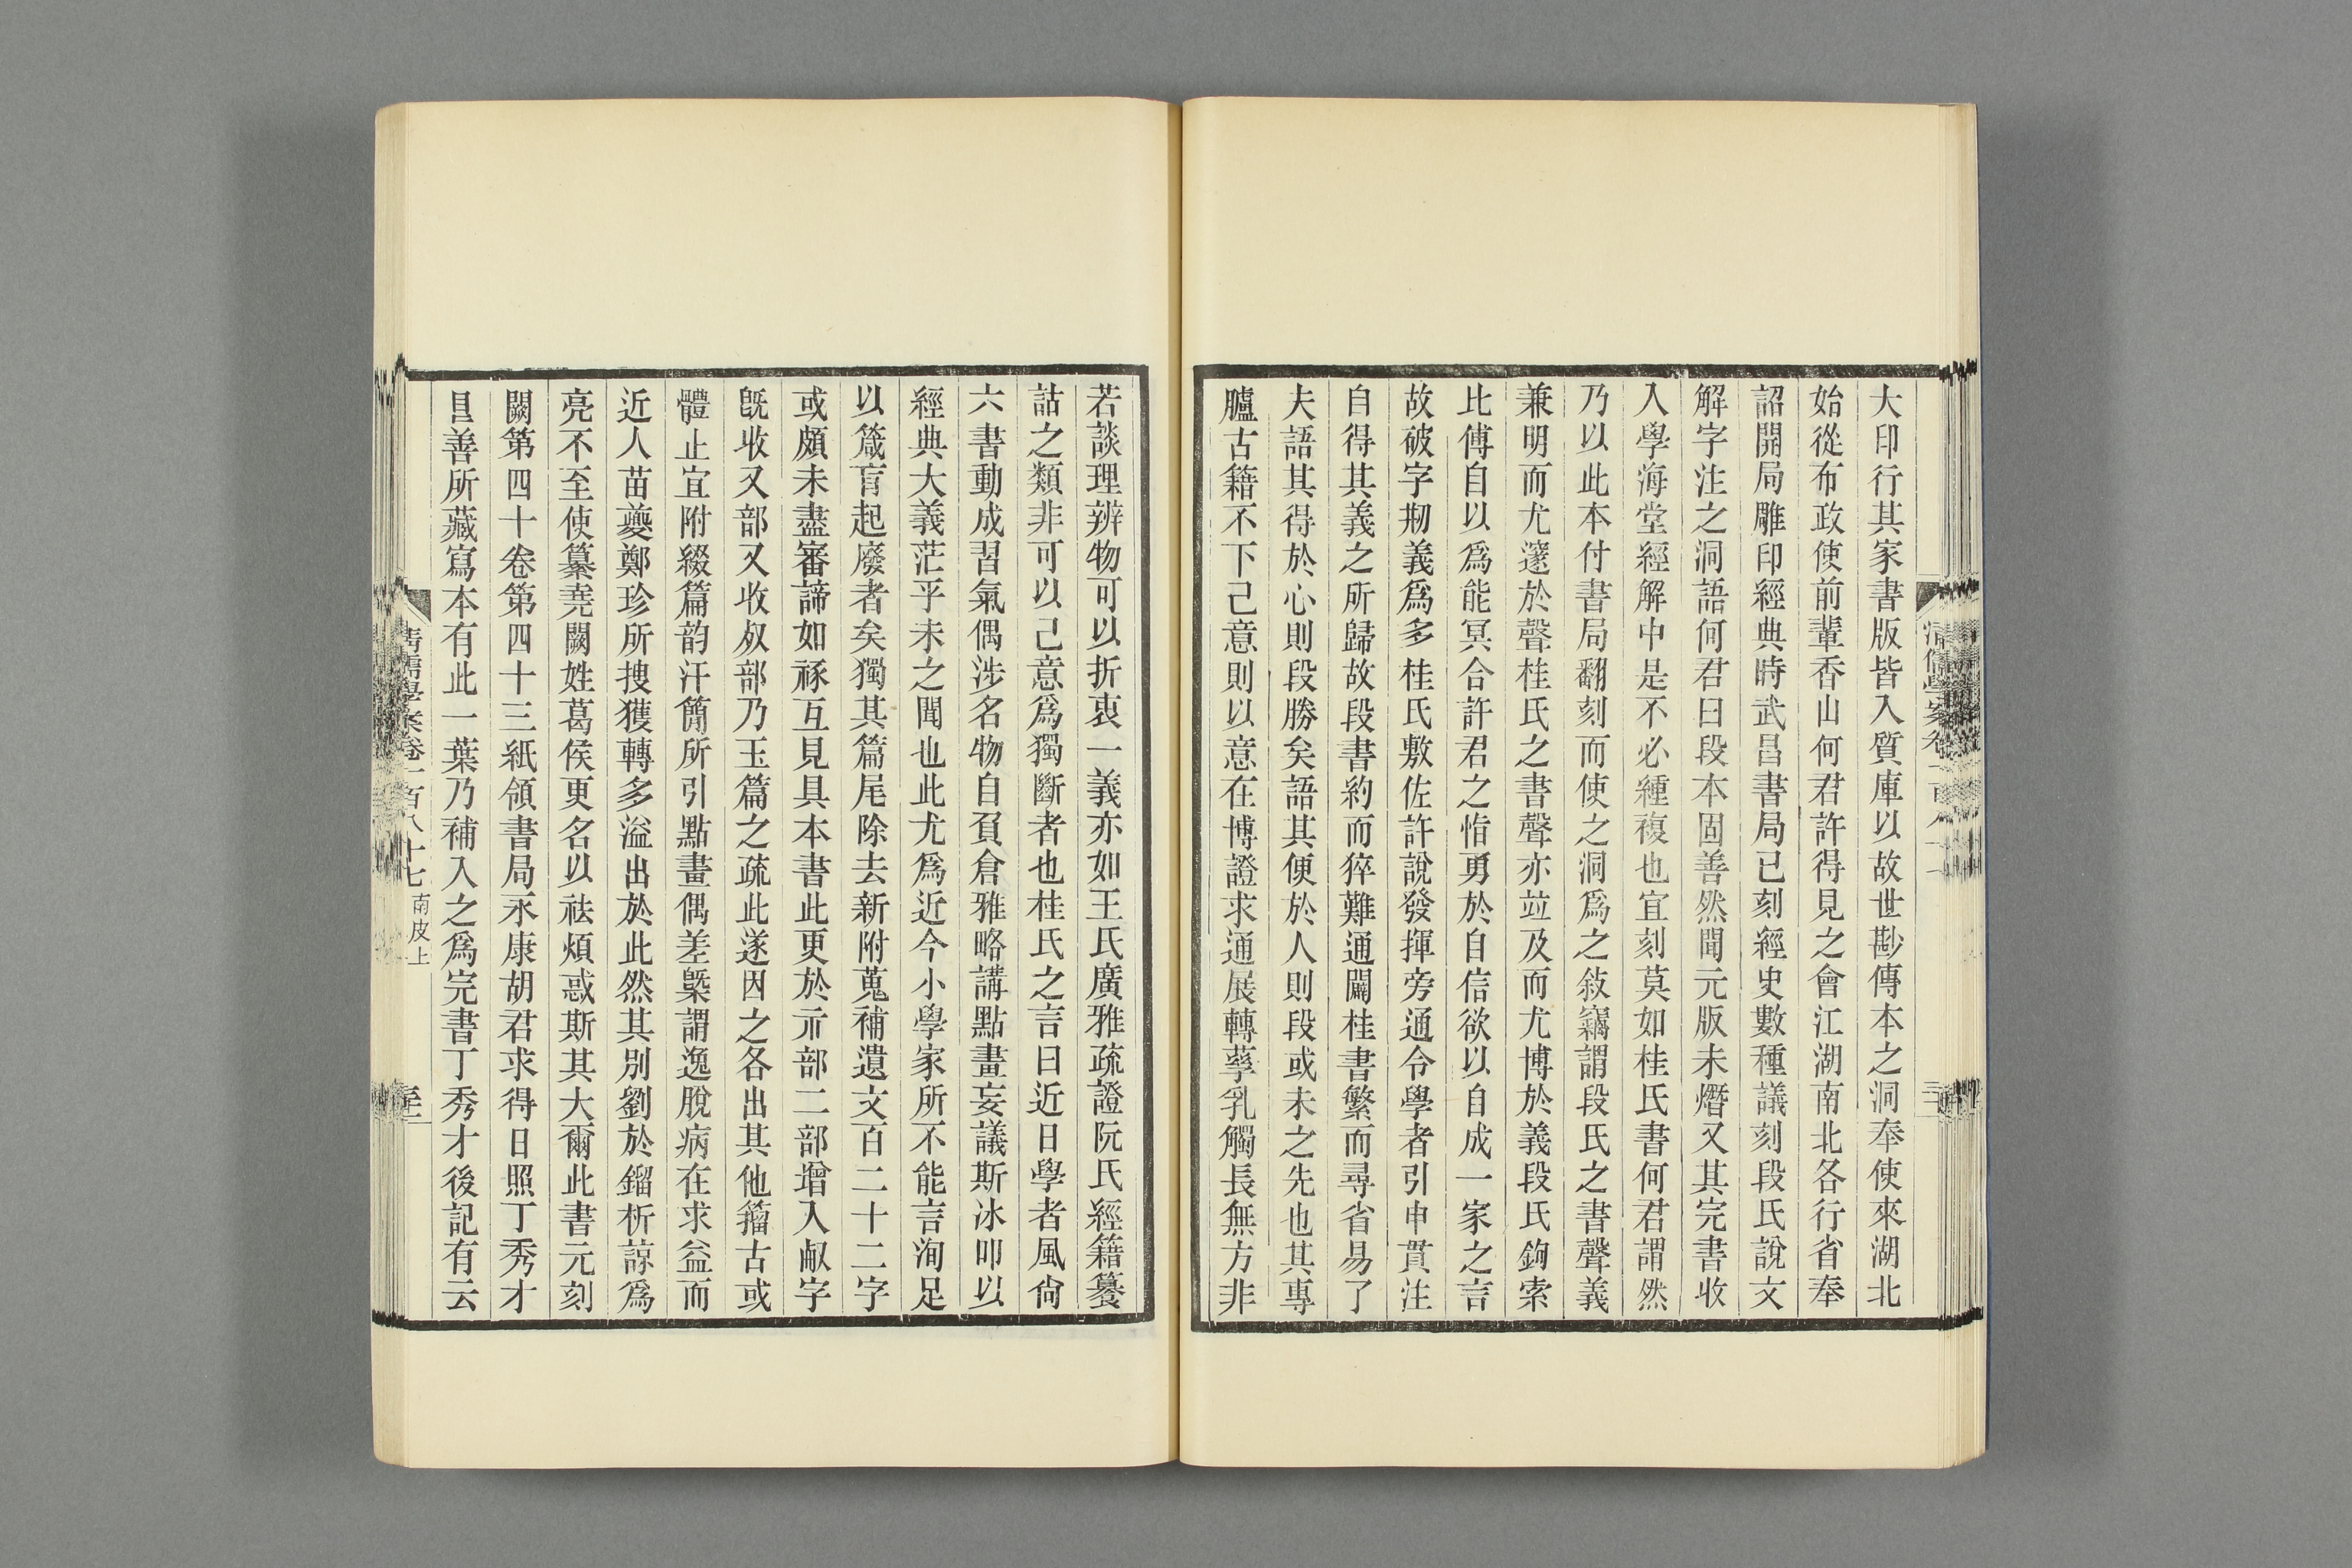 大印行其家書版皆入質庫以故世尠傳本之洞奉使來湖北
始從布政使前輩香山何君許得見之會江湖南北各行省奉
詔開局雕印經典時武昌書局已刻經史數種議刻段氏說文
解字注之洞語何君曰段本固善然聞元版未熸又其完書收
入學海堂經解中是不必緟複也宜刻莫如桂氏書何君謂然
乃以此本付書局翻刻而使之洞爲之敍竊謂段氏之書聲義
兼明而尤邃於聲桂氏之書聲亦竝及而尤博於義段氏鉤索
比傅自以爲能冥合許君之恉勇於自信欲以自成一家之言
故破字剏義爲多桂氏敷佐許說發揮旁通令學者引申貫注
自得其義之所歸故段書約而猝難通闢桂書繁而尋省易了
夫語其得於心則段勝矣語其便於人則段或未之先也其專
臚古籍不下己意則以意在博證求通展轉孳乳觸長無方非
若談理辨物可以折衷一義亦如王氏廣雅疏證阮氏經籍籑
詁之類非可以己意爲獨斷者也桂氏之言曰近日學者風尙
六書動成習氣偶涉名物自負倉雅略講點畫妄議斯冰叩以
經典大義茫乎未之聞也此尤爲近今小學家所不能言洵足
以箴肓起廢者矣獨其篇尾除去新附蒐補遺文百二十二字
或頗未盡審諦如豩互見具本書此更於亓部二部增入㕡字
旣收又部又收𣦼部乃玉篇之疏此遂因之各出其他籀古或
體止宜附綴篇韵汗簡所引點畫偶差槩謂逸脫病在求益而
近人苗夔鄭珍所搜獲轉多溢出於此然其別劉於鎦析諒爲
亮不至使纂堯闕姓葛侯更名以袪煩惑斯其大爾此書元刻
闕第四十卷第四十三紙領書局永康胡君求得日照丁秀才
㠯善所藏寫本有此一葉乃補入之爲完書丁秀才後記有云
清儒學案卷一百八十七 南皮上